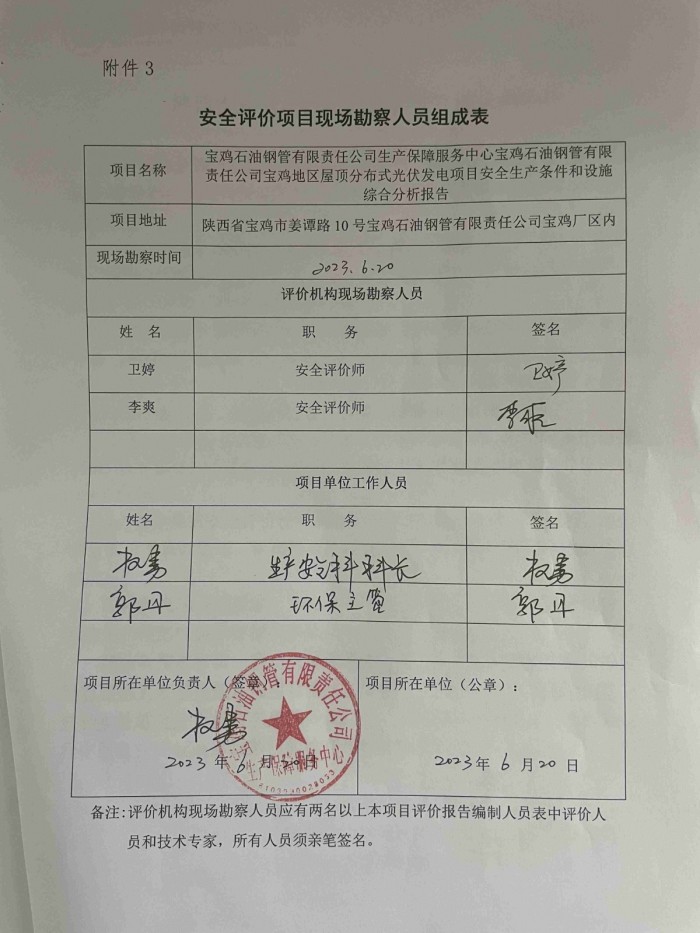 附件 3
安全评价项目现场勘察人员组成表
项目名称
宝鸡石油钢管有限责任公司生产保障服务中心宝鸡石油钢管有限
责任公司宝鸡地区屋顶分布式光伏发电项目安全生产条件和设施
综合分析报告
项目地址
陕西省宝鸡市姜谭路 10 号宝鸡石油钢管有限责任公司宝鸡厂区内
现场勘察时间
2023.6.20
评价机构现场勘察人员
姓 名 职 务 签名
卫婷 安全评价师 卫婷
李爽 安全评价师 李爽
项目单位工作人员
姓名 职 务 签名
权勇 生产安全科科长 权勇
郭丹 环保主管 郭丹
项目所在单位负责人（签章）
权勇
2023 年 6 月 20 日
石油钢管有限责任公司
生产保障服务中心
项目所在单位（公章）：
2023 年 6 月 20 日
备注:评价机构现场勘察人员应有两名以上本项目评价报告编制人员表中评价人
员和技术专家，所有人员须亲笔签名。